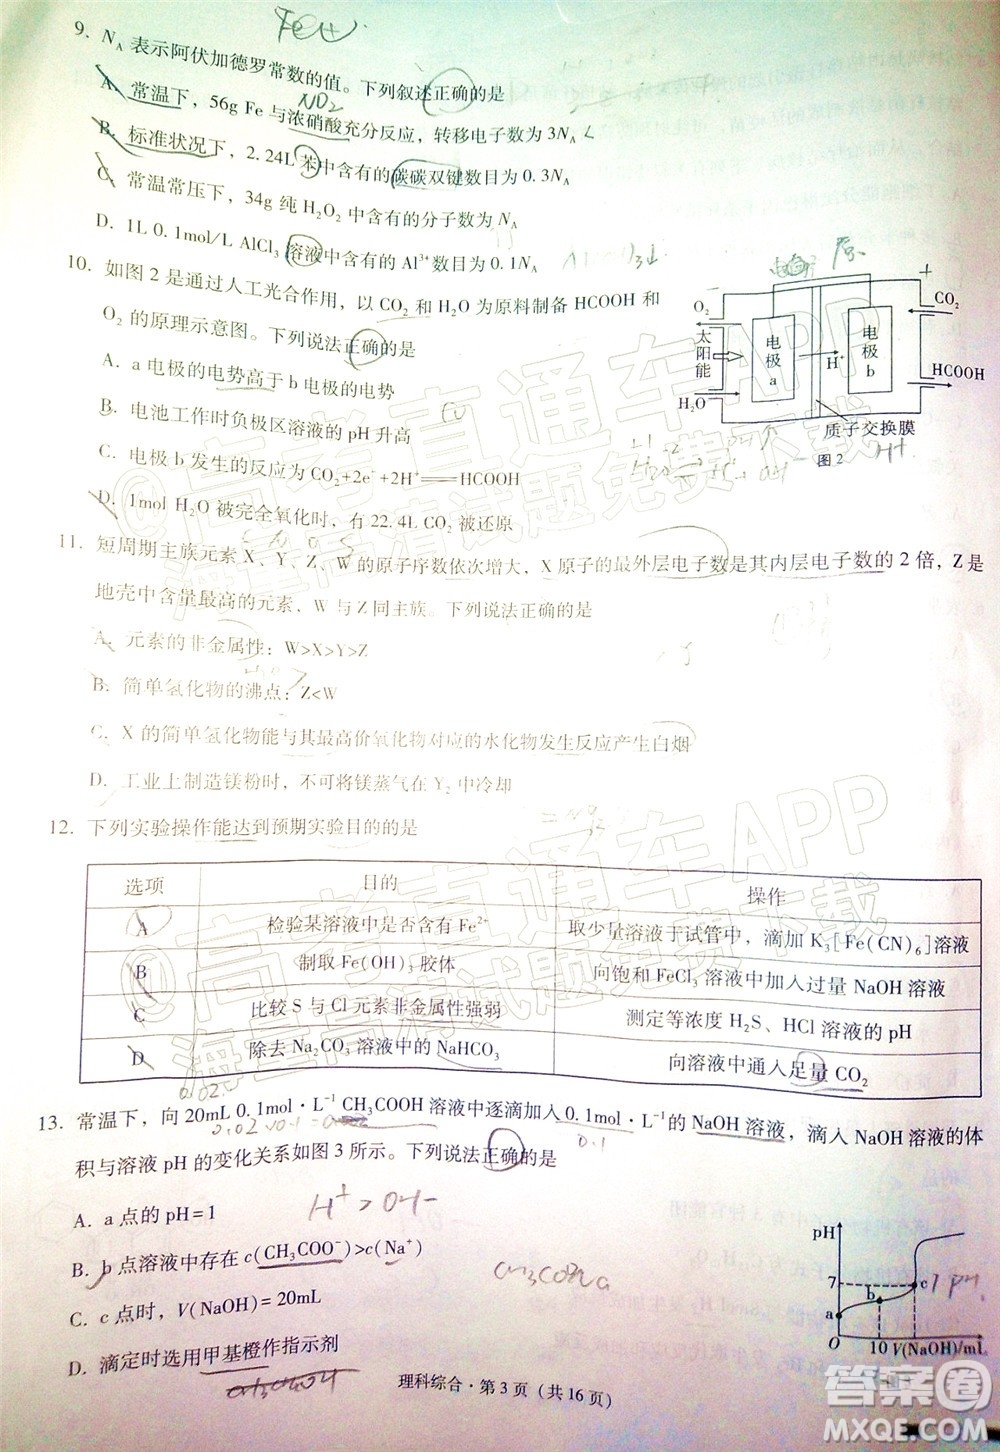 Fe
9. N_A 表示阿伏加德罗常数的值。下列叙述正确的是
NO2
A. 常温下，56g Fe 与浓硝酸充分反应，转移电子数为 3N_A
B. 标准状况下，2.24L 苯中含有的碳碳双键数目为 0.3N_A
C. 常温常压下，34g 纯 H₂O₂ 中含有的分子数为 N_A
D. 1L 0.1mol/L AlCl₃ 溶液中含有的 Al³⁺ 数目为 0.1N_A
10. 如图 2 是通过人工光合作用，以 CO₂ 和 H₂O 为原料制备 HCOOH 和
O₂ 的原理示意图。下列说法正确的是
A. a 电极的电势高于 b 电极的电势
B. 电池工作时负极区溶液的 pH 升高
C. 电极 b 发生的反应为 CO₂+2e⁻+2H⁺══HCOOH
D. 1mol H₂O 被完全氧化时，有 22.4L CO₂ 被还原
原
+
O₂
太阳能
H₂O
电极 a
H⁺
电极 b
CO₂
HCOOH
质子交换膜
图 2
11. 短周期主族元素 X、Y、Z、W 的原子序数依次增大，X 原子的最外层电子数是其内层电子数的 2 倍，Z 是
地壳中含量最高的元素，W 与 Z 同主族。下列说法正确的是
A. 元素的非金属性：W>X>Y>Z
B. 简单氢化物的沸点：Z<W
C. X 的简单氢化物能与其最高价氧化物对应的水化物发生反应产生白烟
D. 工业上制造镁粉时，不可将镁蒸气在 Y₂ 中冷却
12. 下列实验操作能达到预期实验目的的是
选项 目的 操作
A 检验某溶液中是否含有 Fe²⁺ 取少量溶液于试管中，滴加 K₃[Fe(CN)₆]溶液
B 制取 Fe(OH)₃ 胶体 向饱和 FeCl₃ 溶液中加入过量 NaOH 溶液
C 比较 S 与 Cl 元素非金属性强弱 测定等浓度 H₂S、HCl 溶液的 pH
D 除去 Na₂CO₃ 溶液中的 NaHCO₃ 向溶液中通入足量 CO₂
0.02
13. 常温下，向 20mL 0.1mol·L⁻¹ CH₃COOH 溶液中逐滴加入 0.1mol·L⁻¹ 的 NaOH 溶液，滴入 NaOH 溶液的体
0.1
积与溶液 pH 的变化关系如图 3 所示。下列说法正确的是
A. a 点的 pH=1
H⁺>OH⁻
B. b 点溶液中存在 c(CH₃COO⁻)>c(Na⁺)
CH3COONa
C. c 点时，V(NaOH)=20mL
D. 滴定时选用甲基橙作指示剂
pH
7
a
b
c
O
10 V(NaOH)/mL
理科综合·第 3 页（共 16 页）
@高考直通车APP
海量高清试题免费下载
@高考直通车APP
海量高清试题免费下载
答案圈
MXQE.COM